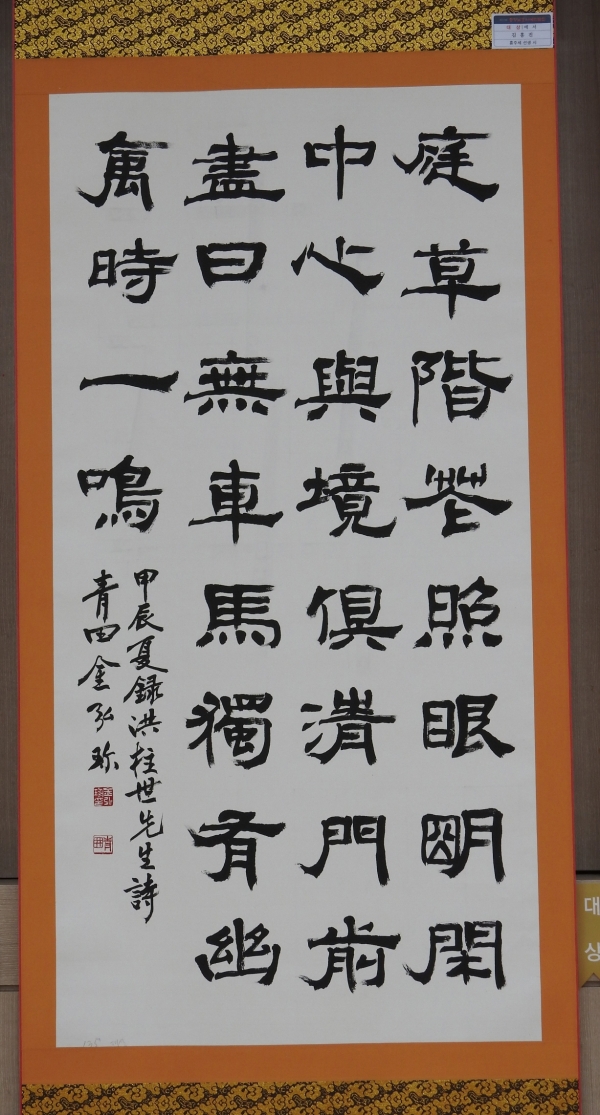 庭草階花照眼朙閑
中心與境俱清門前
盡日無車馬獨有幽
禽時一鳴
甲辰夏錄洪柱世先生詩
青田金弘珎
대
상